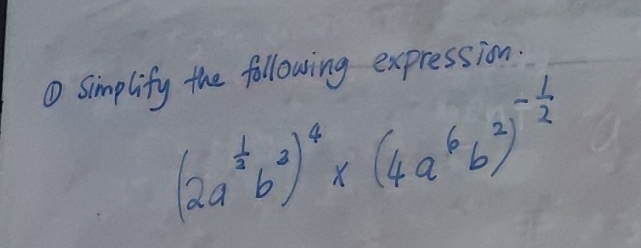 ① Simplify the following expression.
(2a^{\frac{1}{2}} b^3)^4 × (4a^6 b^2)^{-\frac{1}{2}}